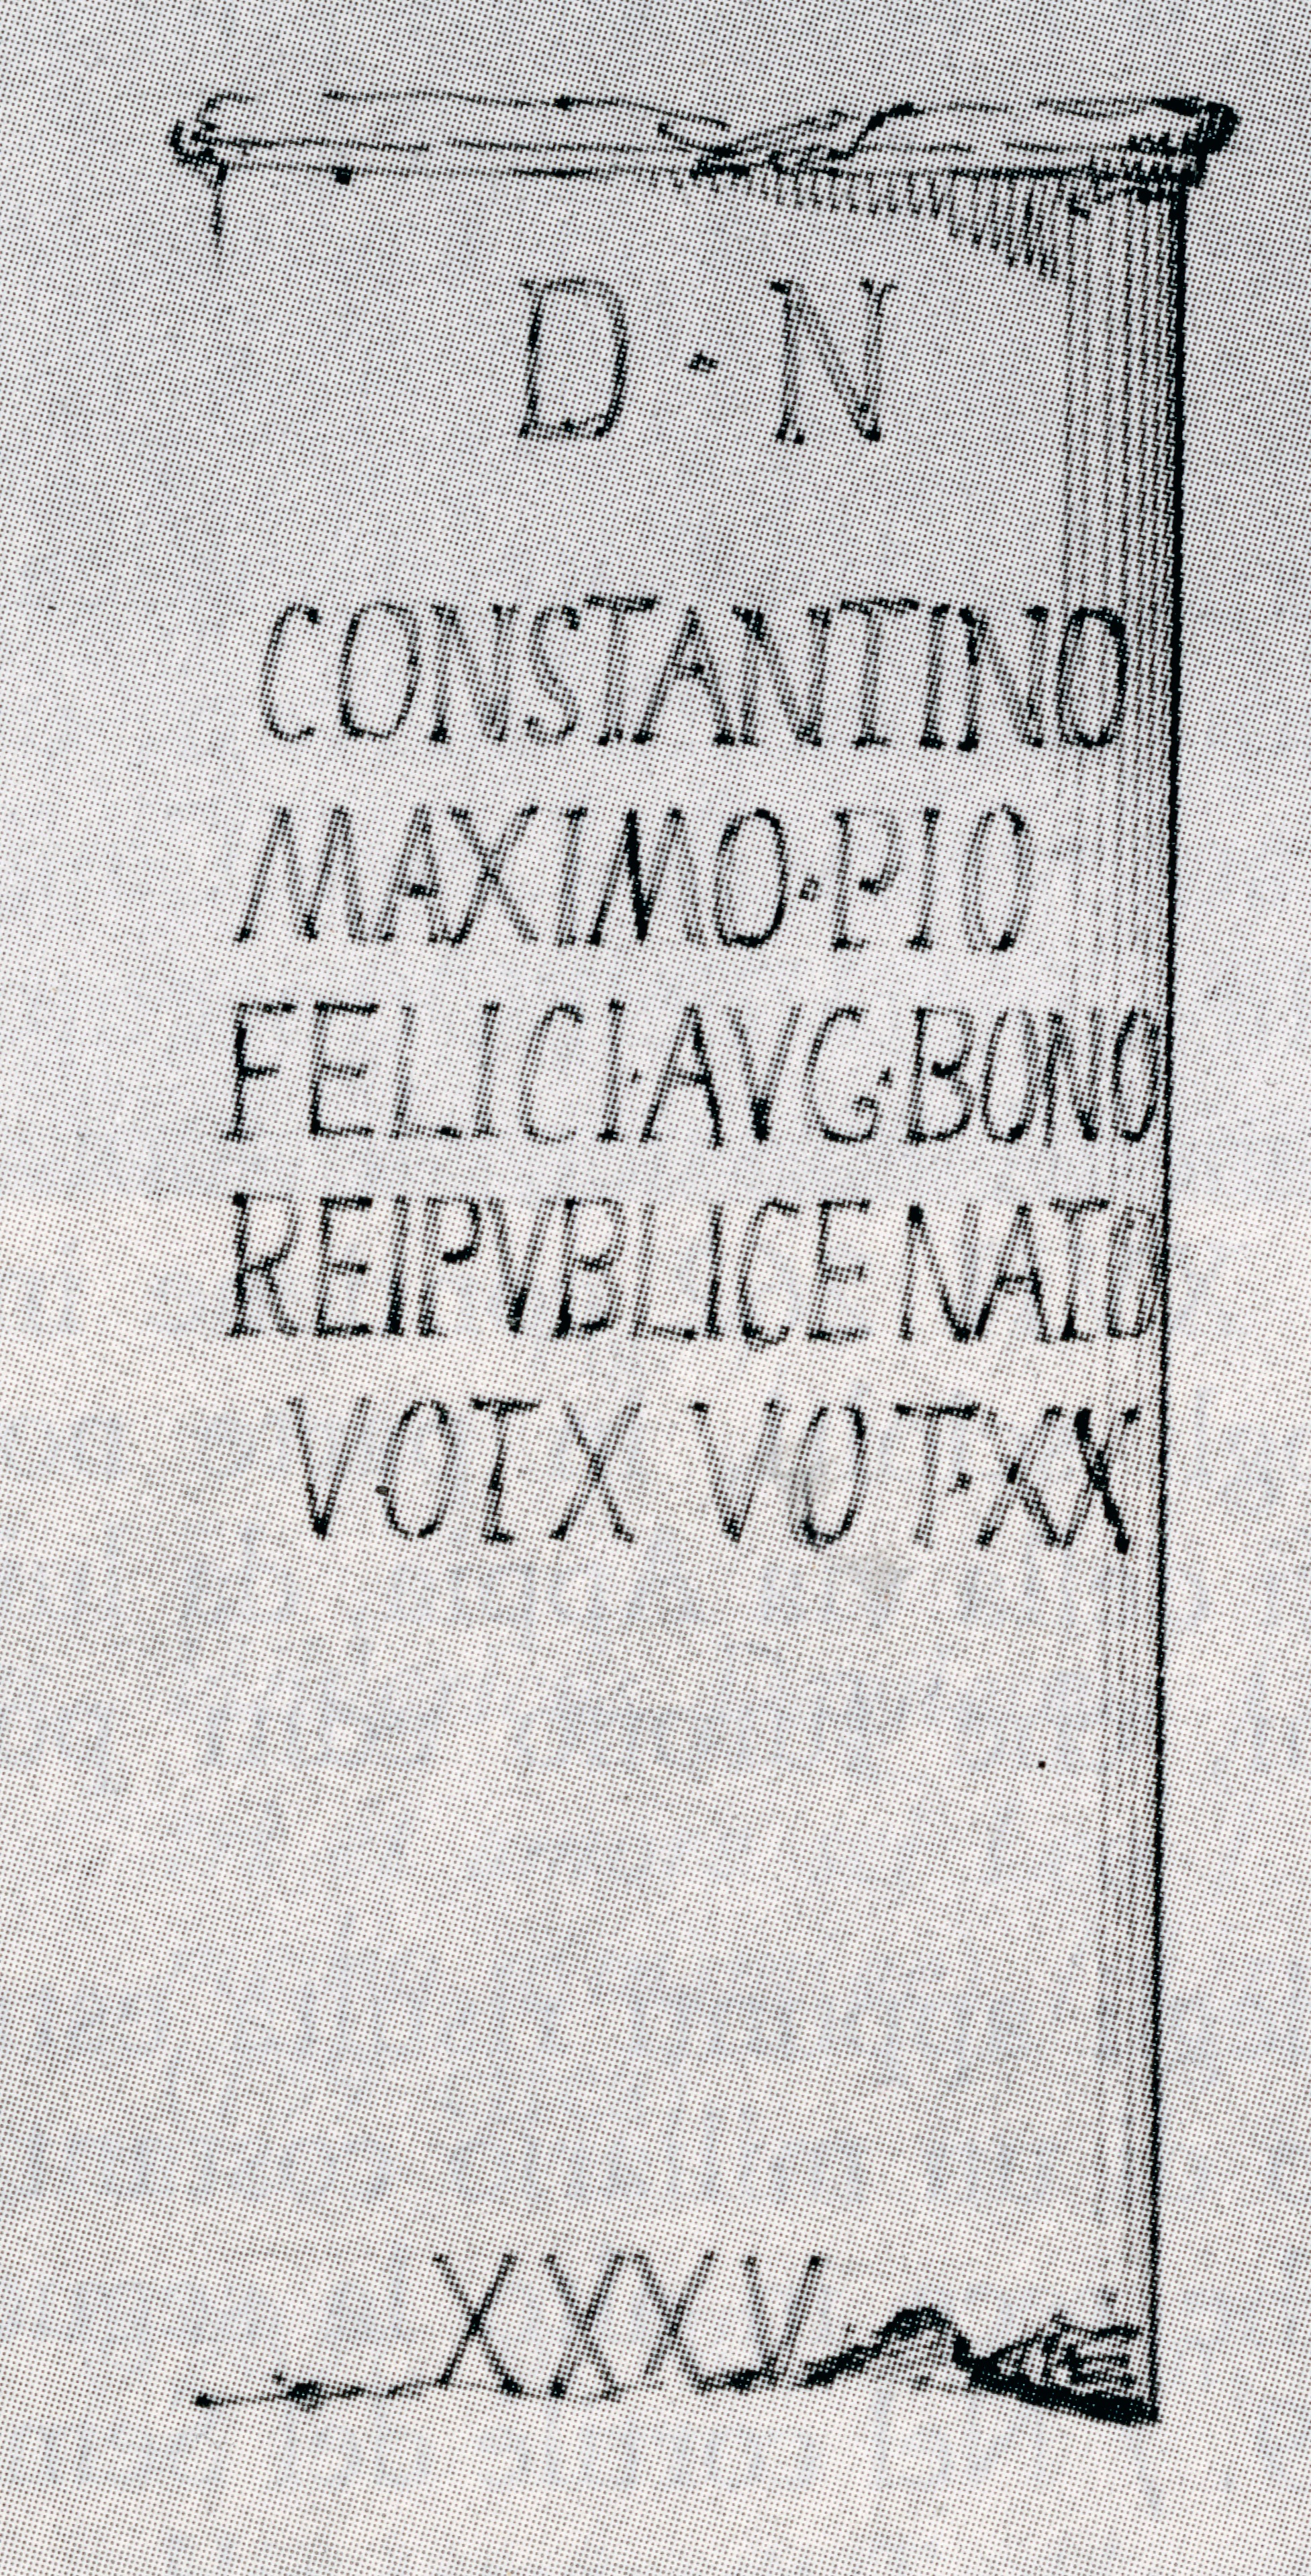 D · N
CONSTANTINO
MAXIMO·PIO
FELICI·AVG·BONO
REIPVBLICE NATO
VOTX VOT·XX
XXXV